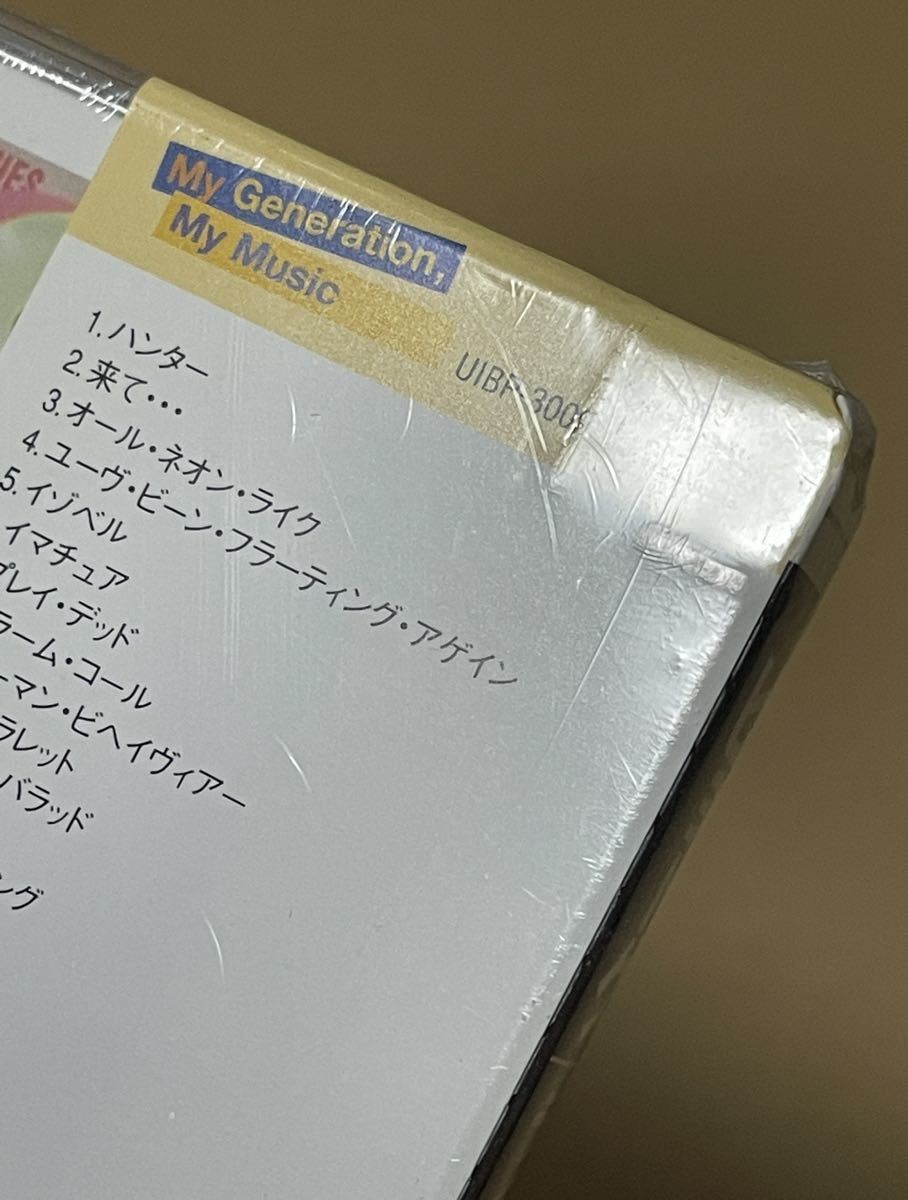 My Generation,
My Music
1. ハンター
2. 来て・・・
3. オール・ネオン・ライク
4. ユーヴ・ビーン・フラーティング・アゲイン
5. イゾベル
イマチュア
プレイ・デッド
ラーム・コール
ーマン・ビヘイヴィアー
ラレット
バラッド
ング